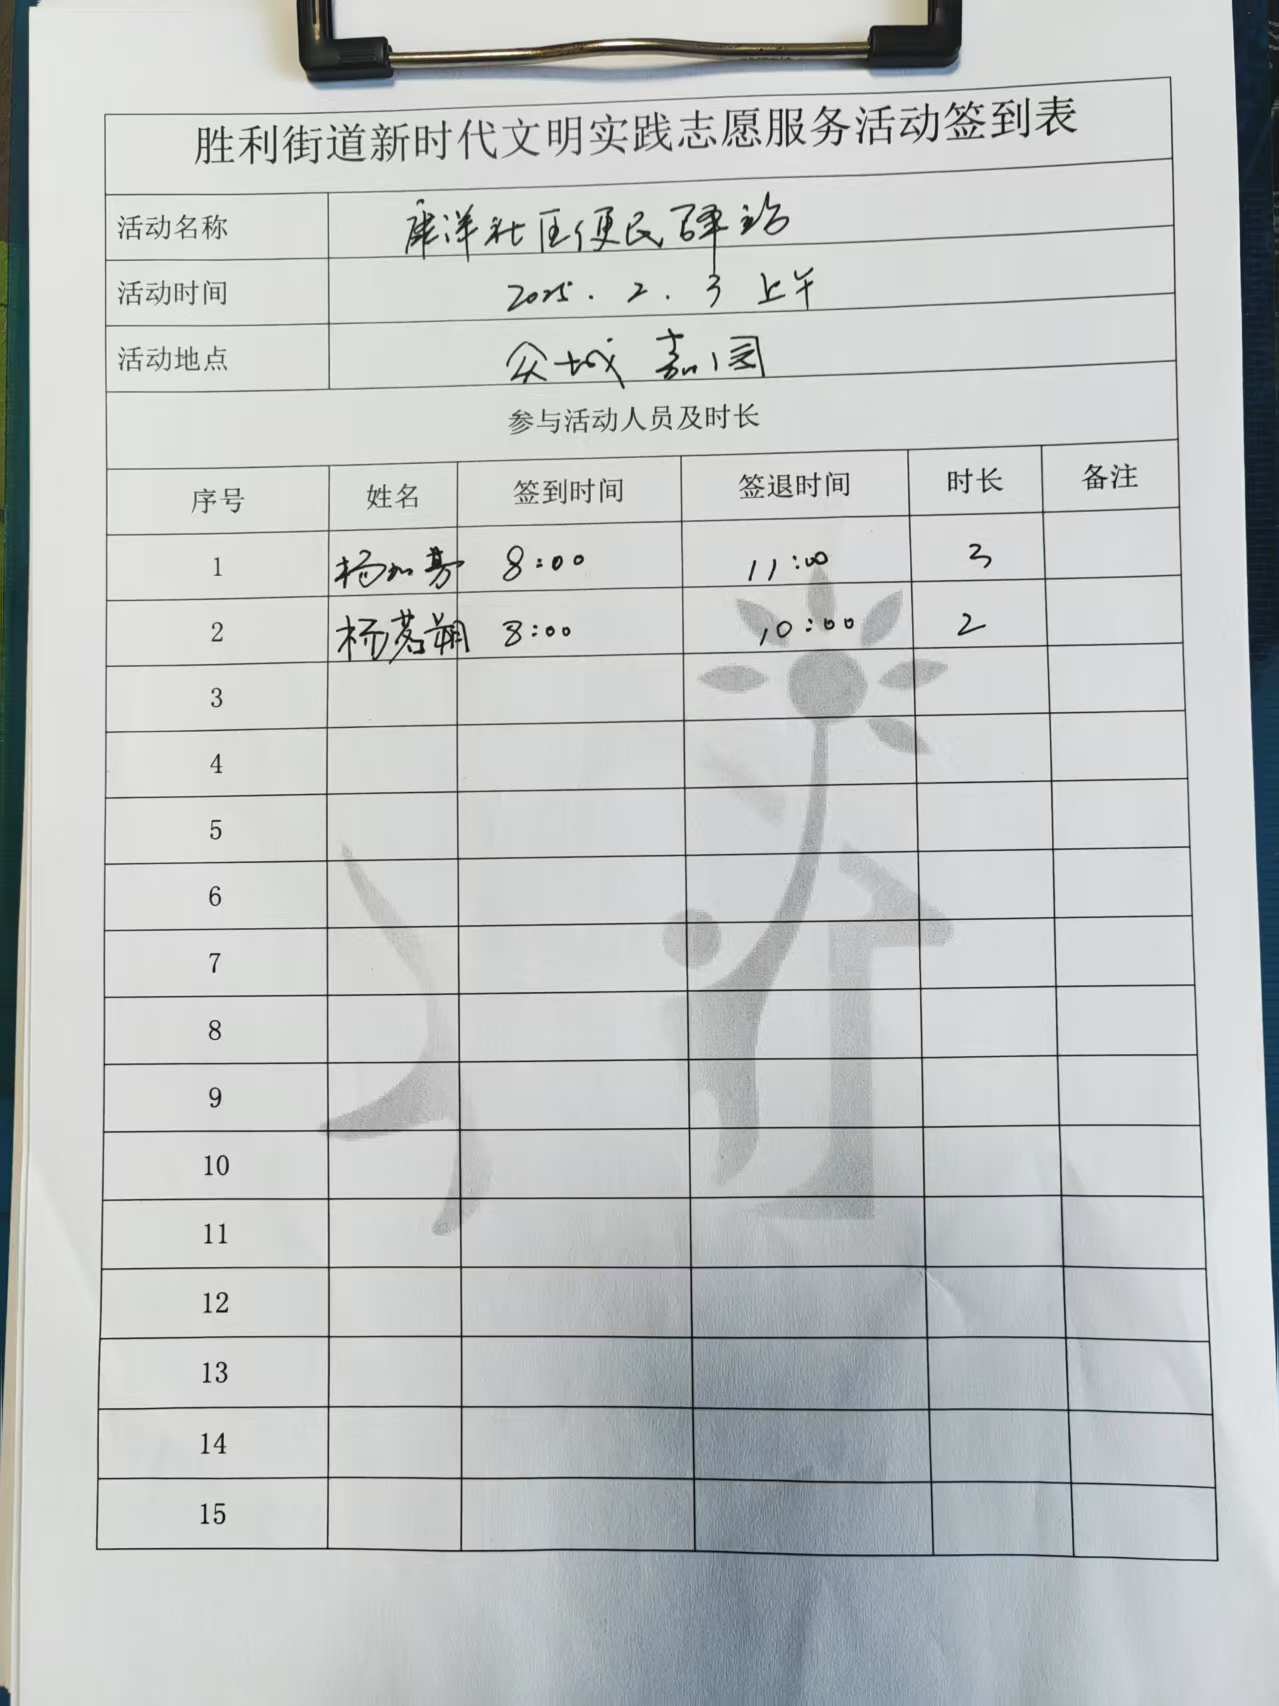 胜利街道新时代文明实践志愿服务活动签到表
活动名称 康洋社区便民驿站
活动时间 2025.2.3 上午
活动地点 众城嘉园
参与活动人员及时长
序号 姓名 签到时间 签退时间 时长 备注
1 杨 8:00 11:00 3
2 杨茗翔 8:00 10:00 2
3
4
5
6
7
8
9
10
11
12
13
14
15